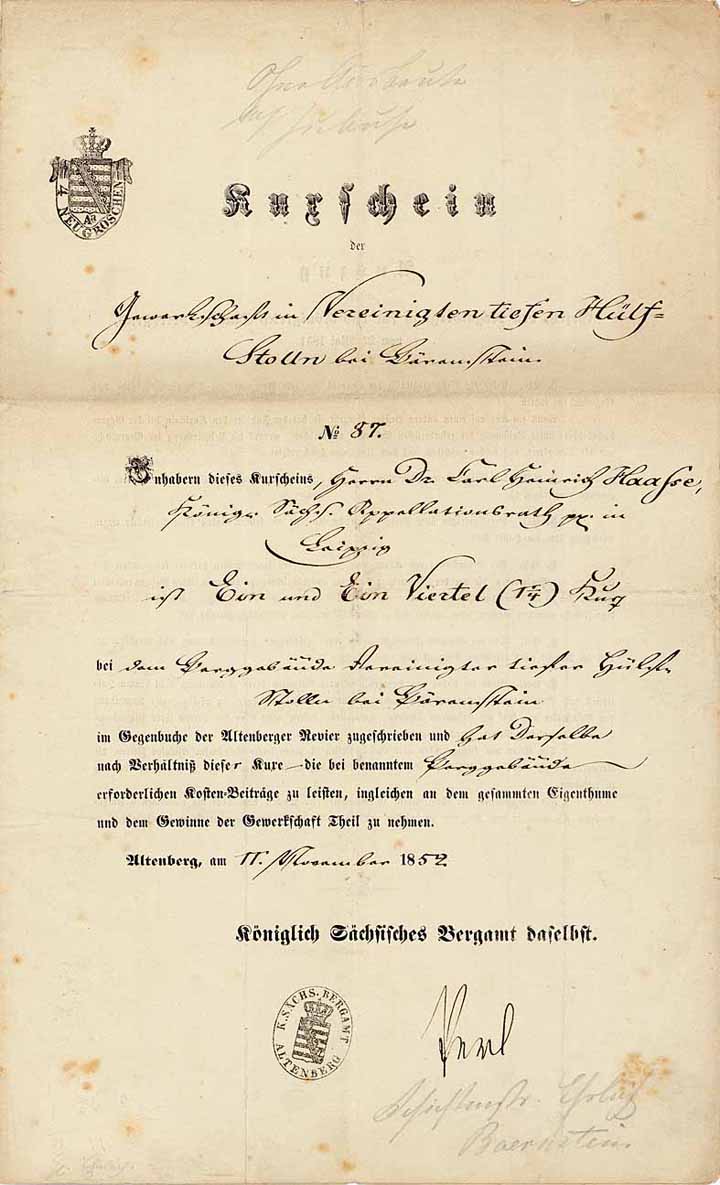 Ohne Ausbeute
und Zubuße
4
NEUGROSCHEN
Kuxschein
der
Gewerkschaft in Vereinigten tiefen Hülf-
Stolln bei Bärenstein.
No 87.
Inhabern dieses Kuxscheins, Herrn Dr. Carl Heinrich Haasse,
Königl. Sächs. Appellationsrath pp. in
Leipzig
ist Ein und Ein Viertel (1 1/4) Kux
bei dem Berggebäude Vereinigter tiefer Hülfs-
Stolln bei Bärenstein
im Gegenbuche der Altenberger Revier zugeschrieben und hat Derselbe
nach Verhältniß dieser Kuxe die bei benanntem Berggebäude
erforderlichen Kosten-Beiträge zu leisten, ingleichen an dem gesammten Eigenthume
und dem Gewinne der Gewerkschaft Theil zu nehmen.
Altenberg, am 11. November 1852
Königlich Sächsisches Bergamt daselbst.
K. SÄCHS. BERGAMT
ALTENBERG
Perl
Schichtmstr.
Baernstein.